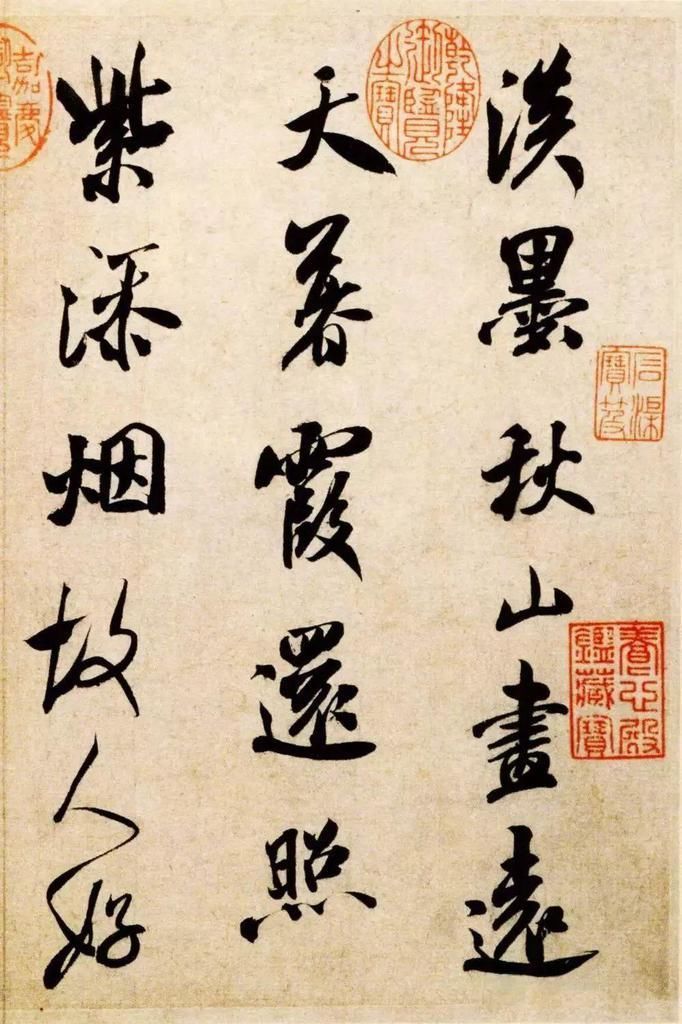 淡墨秋山畫遠
天暮霞還照
紫添烟故人好
乾隆御覽之寶
石渠寶笈
養心殿鑑藏寶
嘉慶